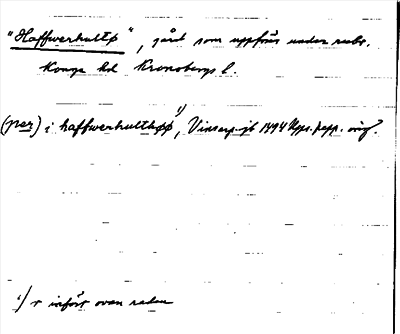 "Haffwerhultø", gård som uppföres under rubr.
Konga hd Kronobergs l.
(per) i haffwerhulthøø ¹), Vinsarp jb 1494 Upps. papp. orig.
¹) r införs ovan raden